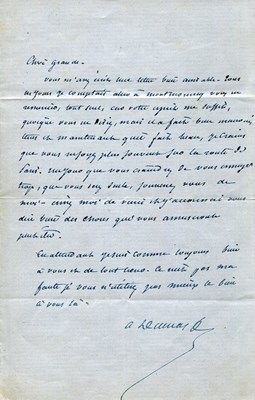 Chère grande -
Vous m'avez écrit une lettre bien aimable - Tous
les jours je comptais aller à Montmorency vous en
remercier, tout seul, car votre amitié me suffit,
quoique vous en disiez, mais il a fait bien mauvais
temps et maintenant qu'il fait beau, je crains
que vous ne soyez plus souvent sur la route de
Paris. Un jour que vous craindrez de vous ennuyer
trop, que vous serez seule, souvenez vous de
moi - moi de venir et j'accourrai vous
dire bien des choses que vous amuseront
peut être -
En attendant je suis comme toujours bien
à vous et de tout coeur. Ce n'est pas ma
faute si vous n'utilisez pas mieux le bien
à vous là -
A Dumas f